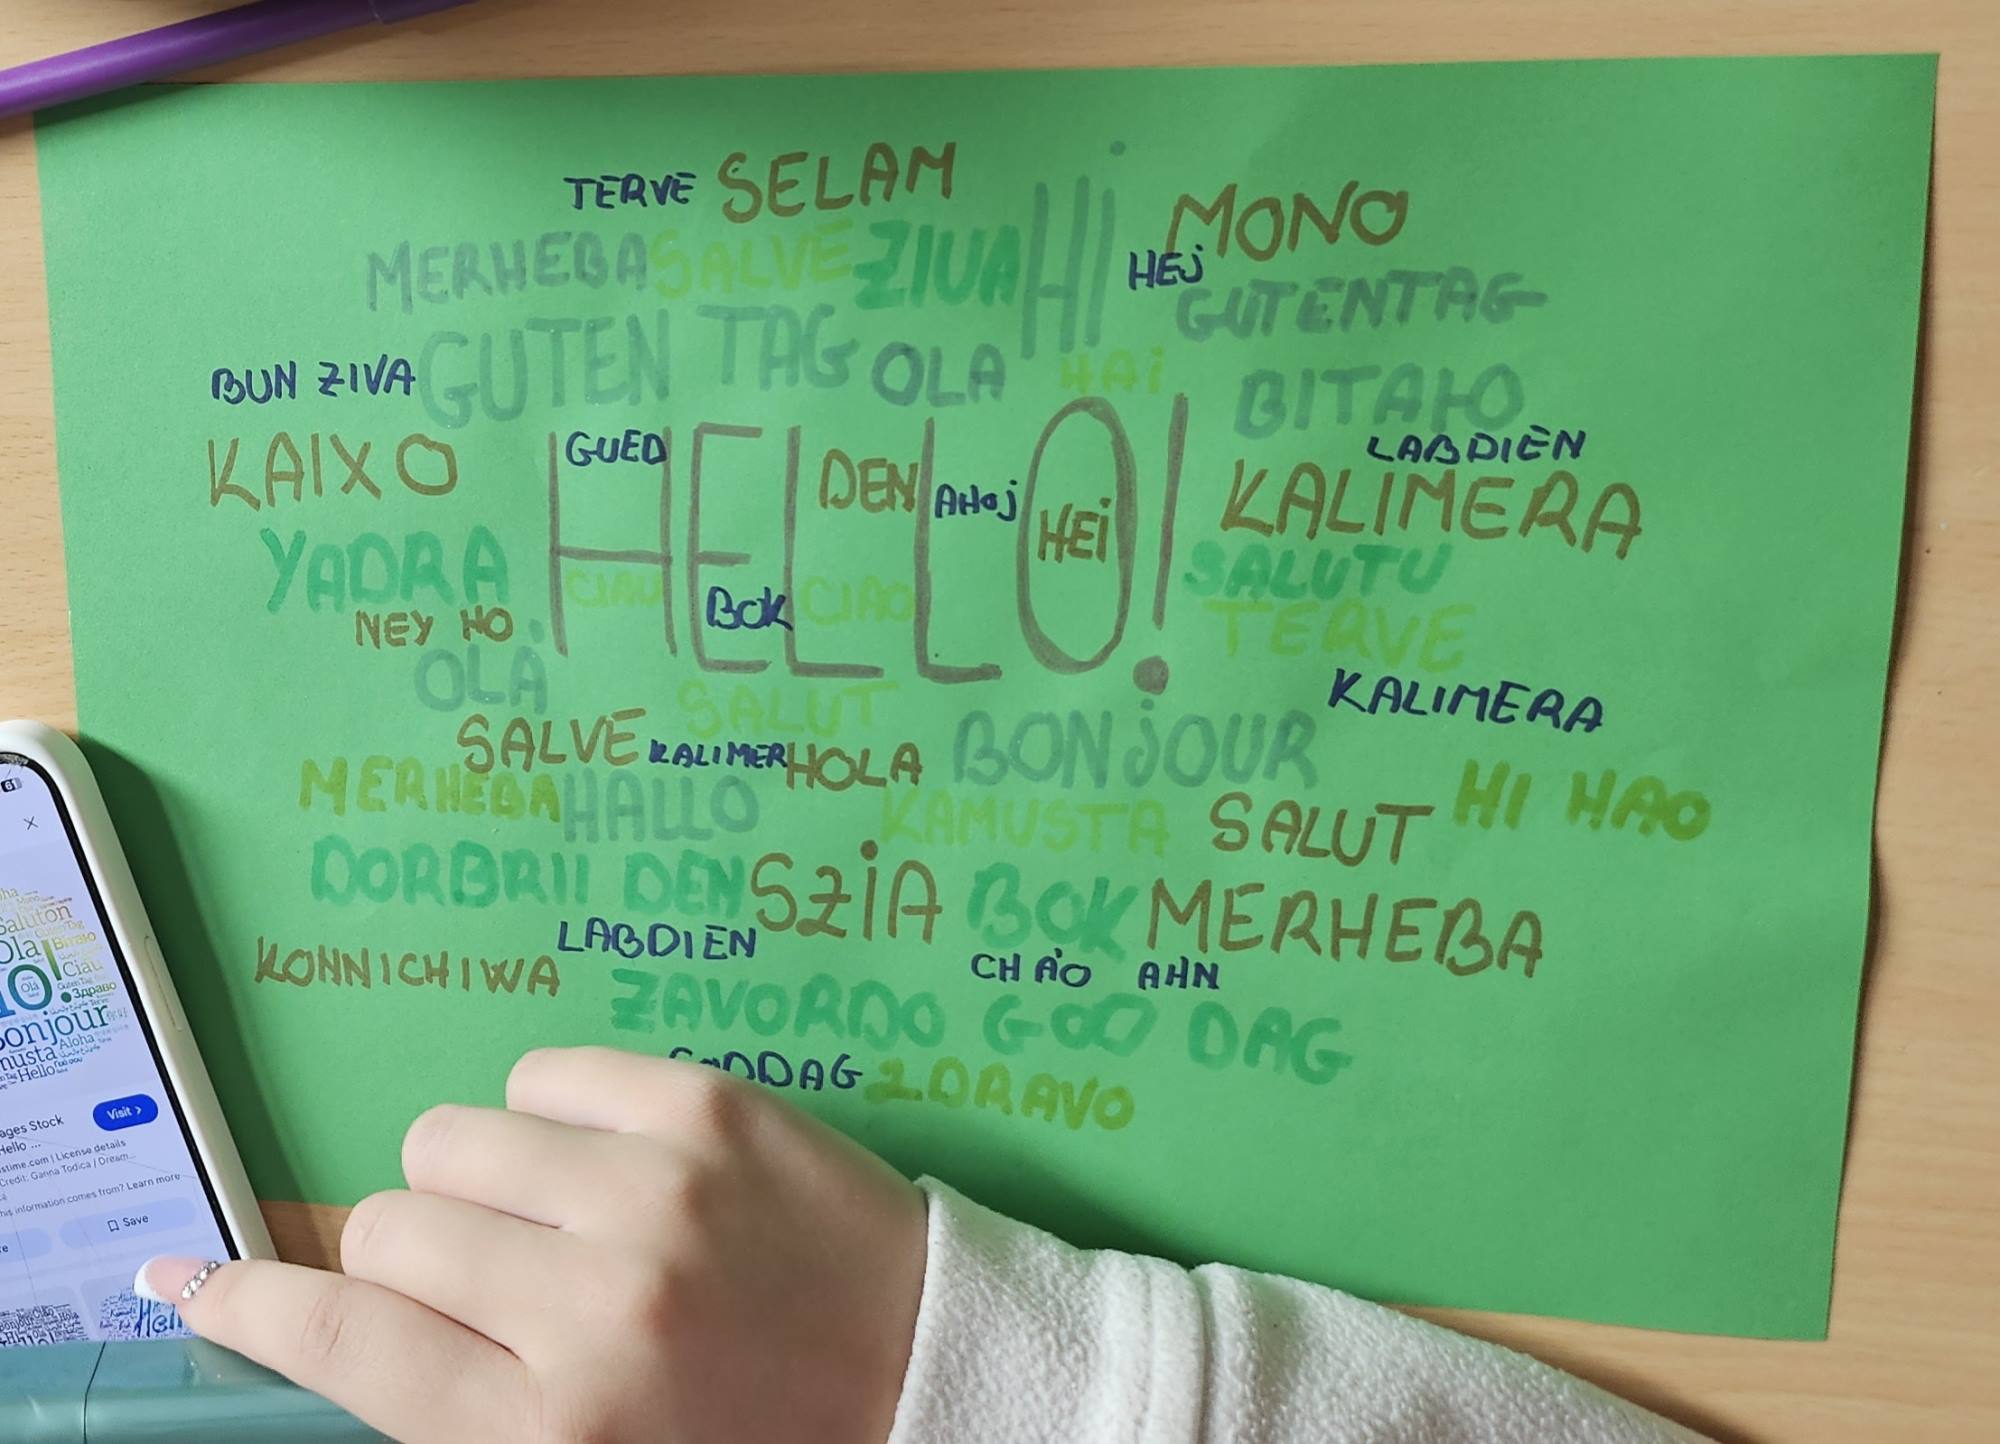 TERVE SELAM
HI
MONO
MERHEBA SALVE ZIUA
HEJ
GUTENTAG
GUTEN TAG OLA
HAI
BUN ZIVA
BITAIO
LABDIEN
KAIXO
HELLO!
GUED
DEN
AHOJ
HEI
KALIMERA
YADRA
CIAU
BOK
CIAO
SALUTU
NEY HO
TERVE
OLÁ
SALUT
KALIMERA
SALVE KALIMER HOLA
BONJOUR
MERHEBA HALLO
KAMUSTA
SALUT
HI HAO
DORBRII DEN SZIA BOK MERHEBA
LABDIEN
KONNICHIWA
CHÀO AHN
ZAVORDO GOD DAG
ZDRAVO
Saluton
Ola
Ciau
Здраво
Bonjour
Aloha
Hello
Visit >
ages Stock
Hello ...
stime.com | License details
Credit: Ganna Todica / Dream...
his information comes from? Learn more
Save